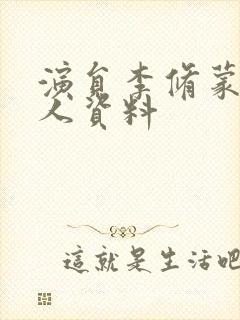 演員李脩蒙
人資料
這就是生活吧